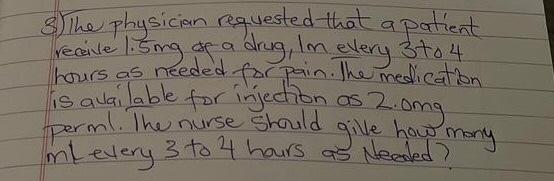 3) The physician requested that a patient
receive 1.5mg of a drug, Im every 3 to 4
hours as needed for pain. The medication
is available for injection as 2.0mg
perml. The nurse should give how many
ml every 3 to 4 hours as Needed?